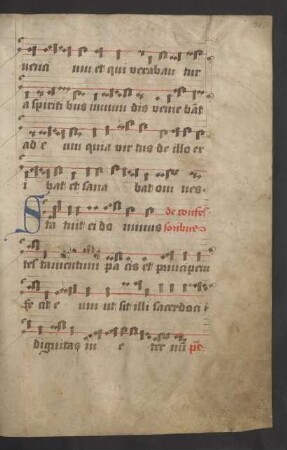 nena um et qui vexaban tur
a spiriti bus immun dis venie bāt
ad e um quia vir tus de illo ex
i bat et sana bat om nes
de confes
Sta tuit ei do minus soribus
tes tamentum pa cis et principem
fe cit e um ut sit illi sacerdo ci
dignitas in e ter nū ps